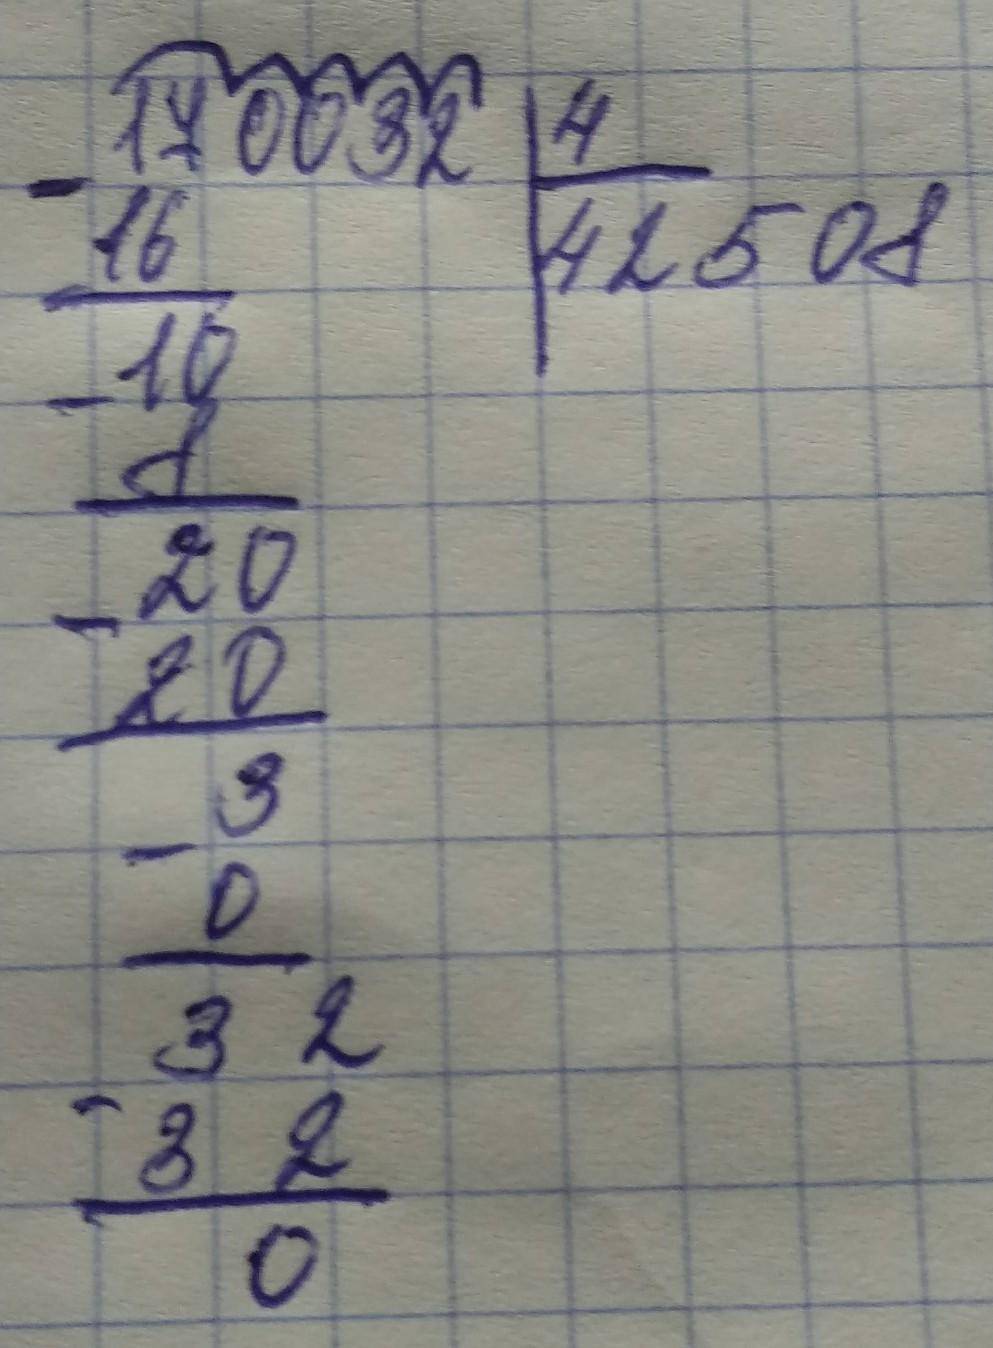 170032 4
- 16 42508
10
- 8
20
- 20
3
- 0
32
- 32
0